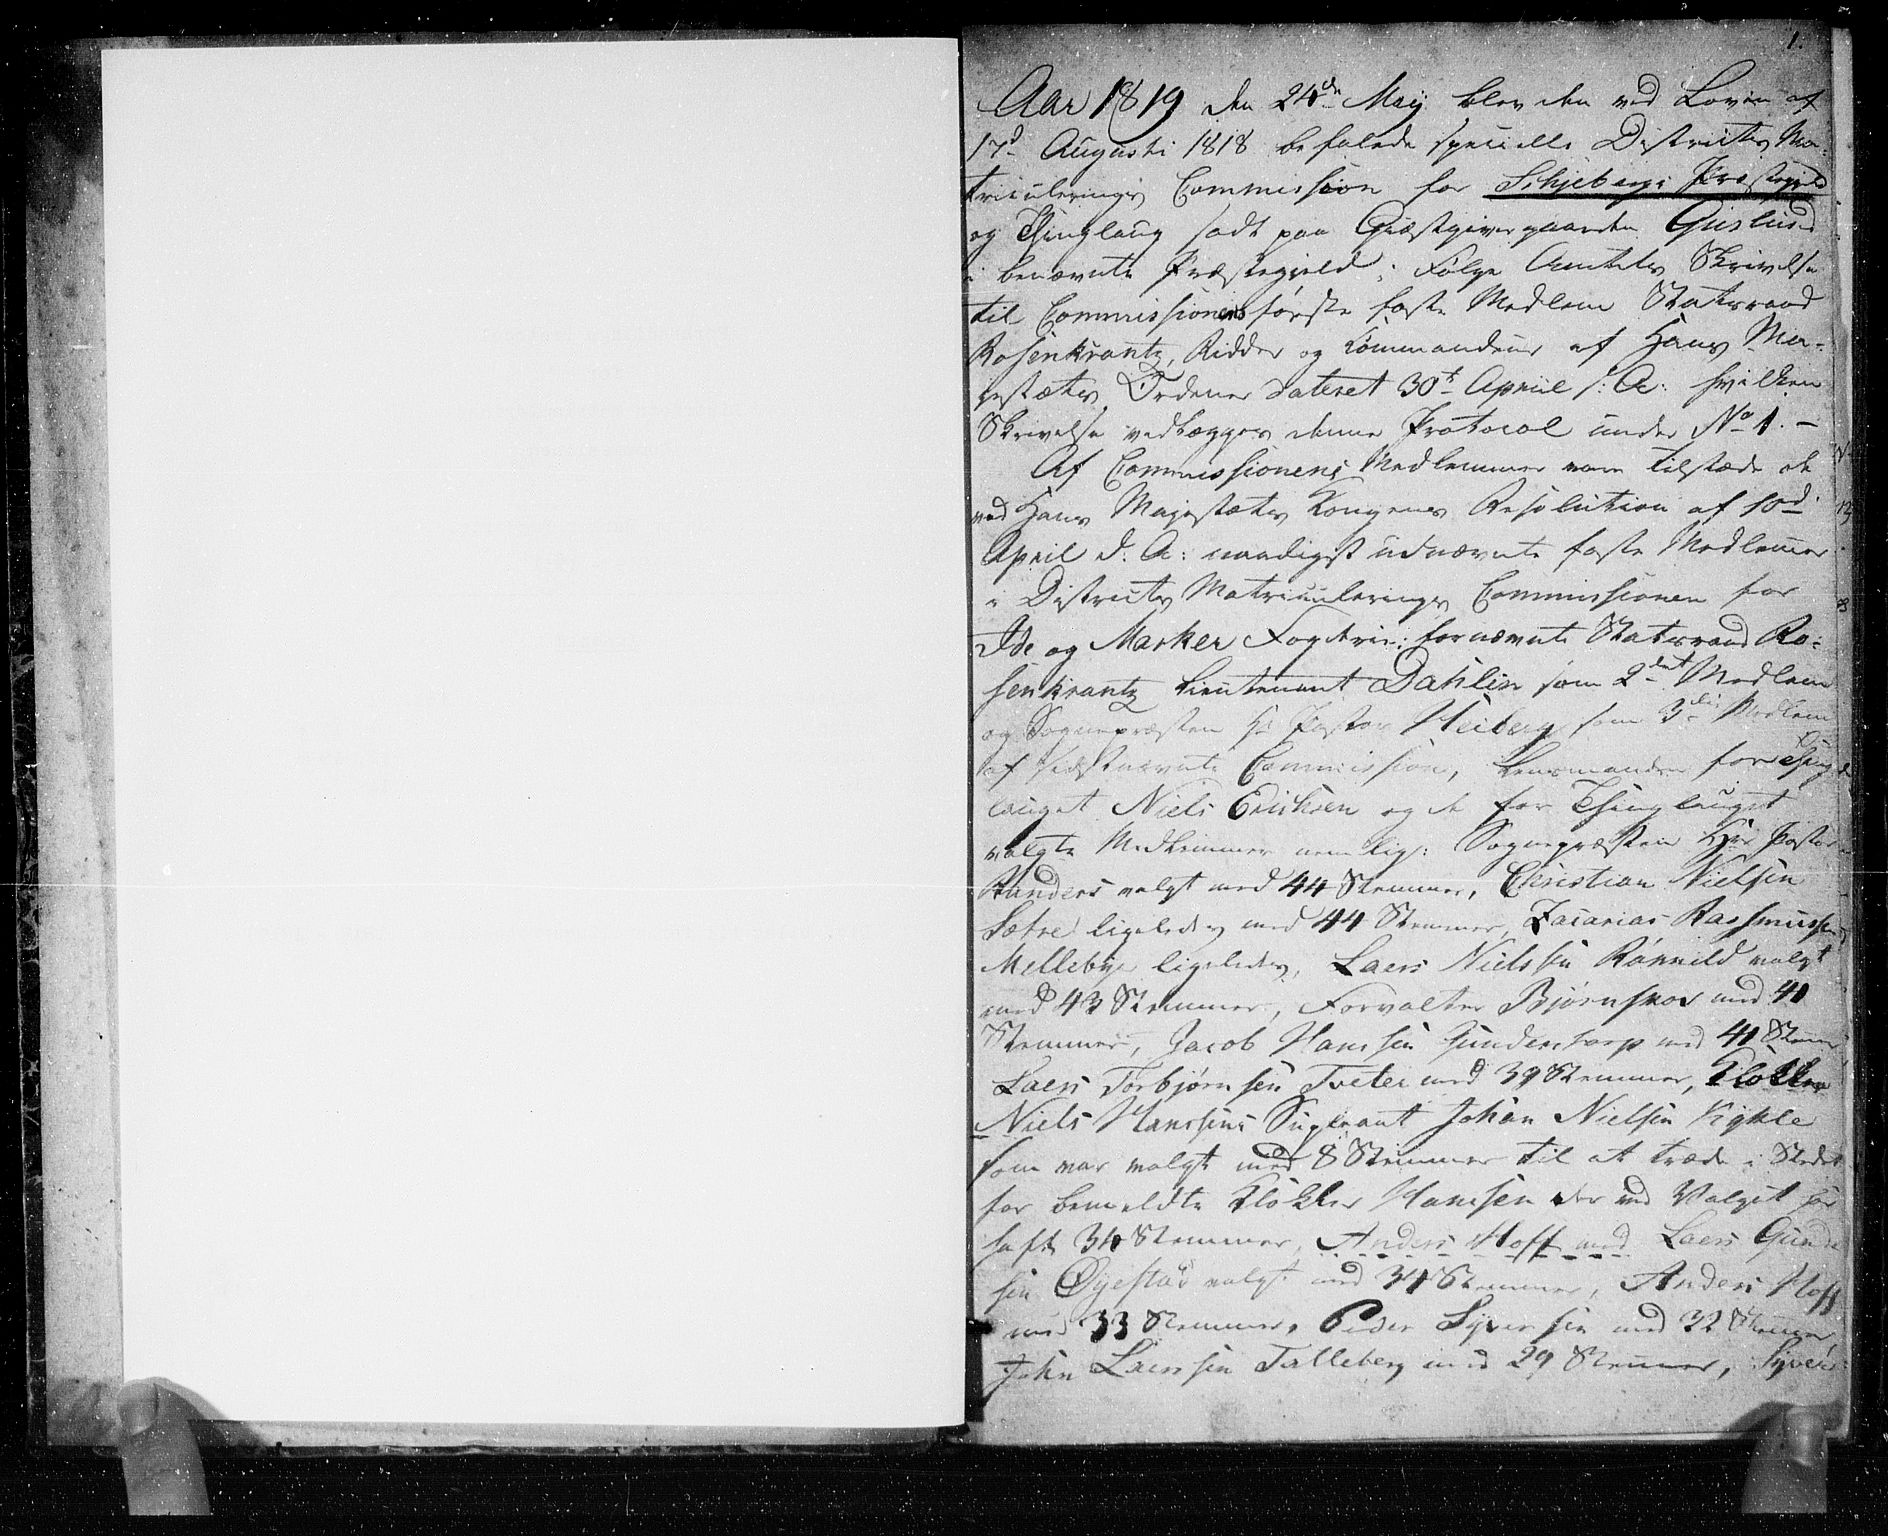 1.
Aar 1819 den 24de May blev den ved Loven af
17d Augusti 1818 befalede specielle Districts Ma-
triculerings Commission for Schjebergs Præstegield
og Thinglaug sadt paa Giæstgivergaarden Guslund
i benævnte Præstegield, i Følge Amtets Skrivelse
til Commissionens første faste Medlem Statsraad
Rosenkrantz, Ridder og Commandeur af Hans Ma-
jestæts Ordener dateret 30te April s: A: hvilken
Skrivelse vedlægges denne Protocol under No 1. –
Af Commissionens Medlemmer vare tilstæde de
ved Hans Majestæts Kongens Resolution af 10d
April d: A: naadigst udnævnte faste Medlemer
i Districts Matriculerings Commissionen for
Ide og Marker Fogderie: fornævnte Statsraad Ro-
senkrantz Lieutenant Dahlin som 2det Medlem
og Sognepræsten Hr Pastor Heiberg som 3die Medlem
af sidstnævnte Commission, Lensmanden for Thing
lauget Niels Erichsen og de for Thinglauget
valgte Medlemmer nemlig: Sognepræsten Hr Pastor
Randers valgt med 44 Stemmer, Christian Nielsen
Sætre ligeledes med 44 Stemmer, Zacarias Rasmussen
Mellebye ligeledes, Laers Nielssen Rønneld valgt
med 43 Stemmer, Forvalter Bjørnstad med 41
Stemmer, Jacob Hanssen Gunderstorp med 41 Stemmer
Laers Torbjørnsen Tveter med 39 Stemmer, Klokker
Niels Hanssens Supleant Johan Nielsen Kykle
som var valgt med 8 Stemmer til at træde i Stedet
for bemeldte Klokker Hanssen der ved Valget har
haft 34 Stemmer, Anders Hoff med Laers Gunde
sen Øyestad valgt med 34 Stemmer, Anders Hoff
med 33 Stemmer, Peder Syversen med 32 Stemmer
John Laerssen Talleberg med 29 Stemmer, Syver